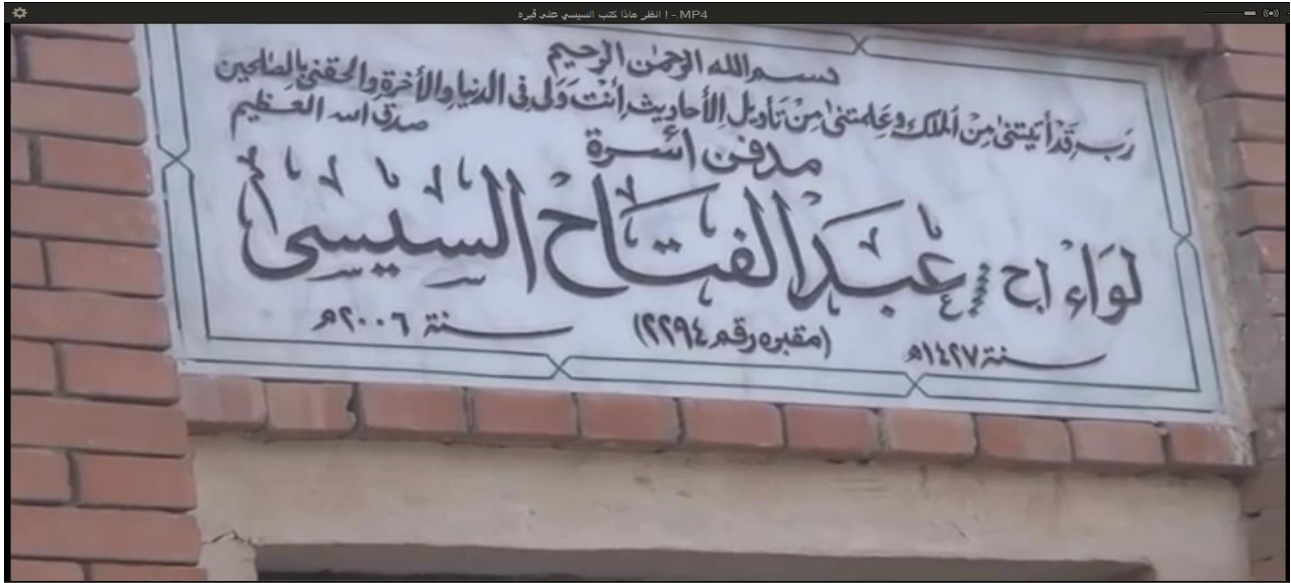 انظر هاذا كتب السيسي على قبره ! -.MP4
بسم الله الرحمن الرحيم
رَب قَد أتيتنى مِن الملك وعَلمتنى مِن تَأويل الأحاديث أنت وَلى فى الدنيا والأخرة والحقنى بالصالحين
صدق الله العظيم
مدفن أسرة
لوَاء اح عَبدَ الفتَاح السيسى
سنة ١٤٢٧هـ (مقبره رقم ٢٢٩٤) سنة ٢٠٠٦م